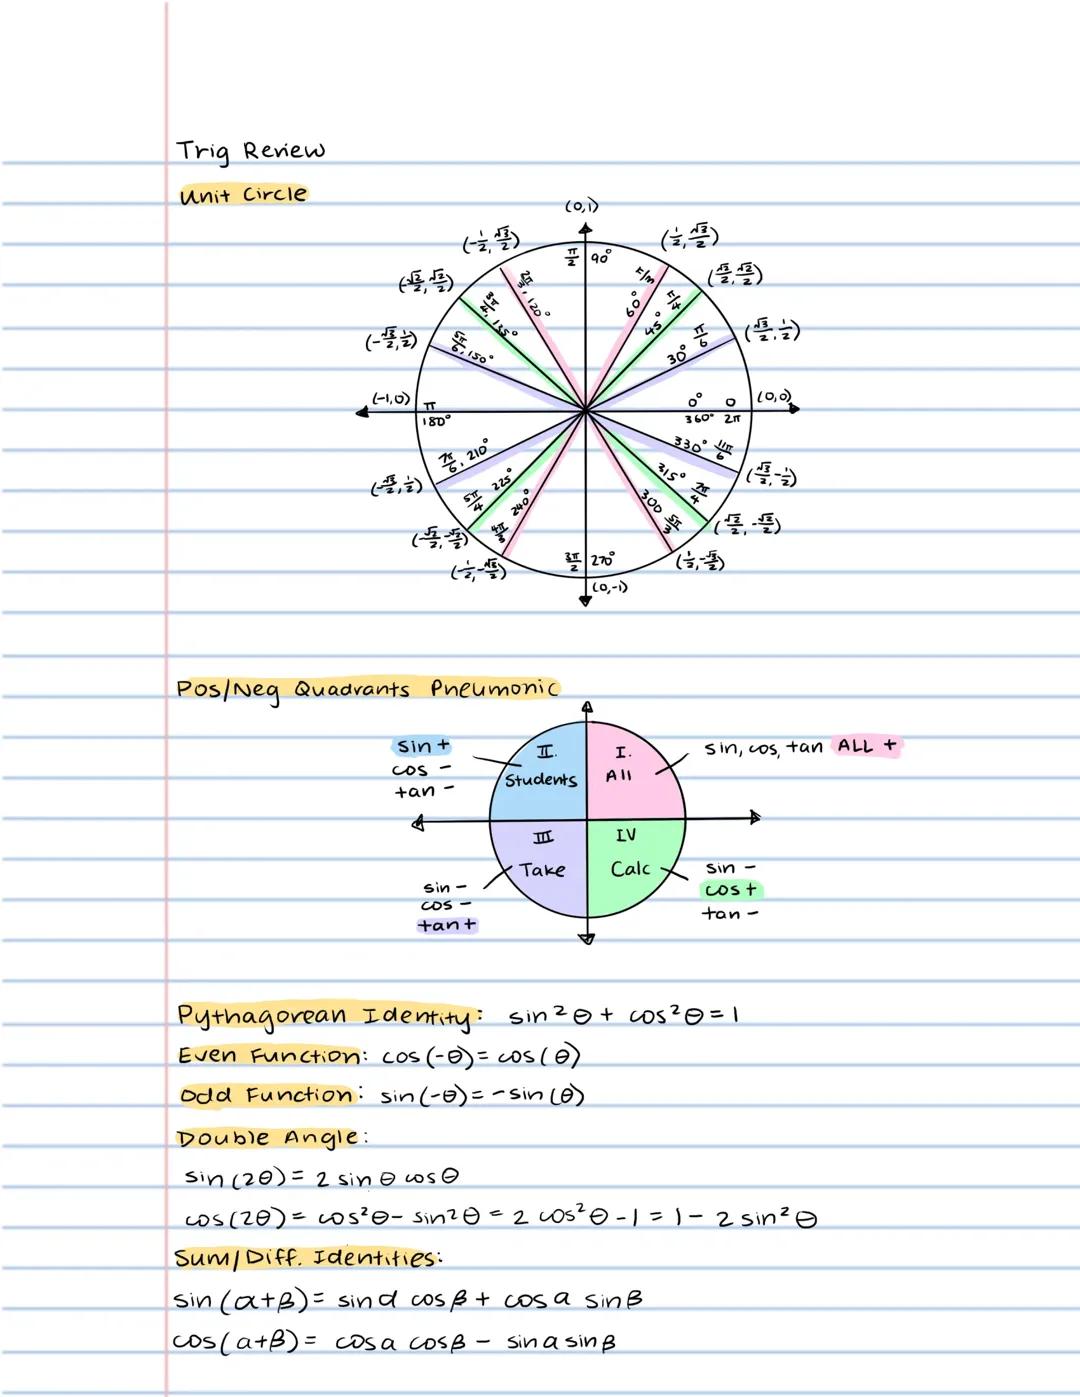 Trig Review
Unit Circle
(0,1)
(-1/2, √3/2)
(1/2, √3/2)
(-√2/2, √2/2)
(√2/2, √2/2)
(-√3/2, 1/2)
(√3/2, 1/2)
π/2 90°
2π/3, 120°
60° π/3
3π/4, 135°
45° π/4
5π/6, 150°
30° π/6
(-1,0)
π
180°
0° 0
360° 2π
(0,0)
7π/6, 210°
330° 11π/6
5π/4 225°
315° 7π/4
4π/3 240°
300 5π/3
3π/2 270°
(-√3/2, 1/2)
(√3/2, -1/2)
(-√2/2, -√2/2)
(√2/2, -√2/2)
(-1/2, -√3/2)
(1/2, -√3/2)
(0,-1)
Pos/Neg Quadrants Pneumonic
sin +
cos -
tan -
II.
Students
I.
All
sin, cos, tan ALL +
III
Take
IV
Calc
sin -
cos -
tan +
sin -
cos +
tan -
Pythagorean Identity: sin²θ + cos²θ = 1
Even Function: cos(-θ) = cos(θ)
Odd Function: sin(-θ) = -sin(θ)
Double Angle:
sin(2θ) = 2 sin θ cos θ
cos(2θ) = cos²θ - sin²θ = 2 cos²θ - 1 = 1 - 2 sin²θ
Sum/Diff. Identities:
sin(α+β) = sin α cos β + cos α sin β
cos(α+β) = cos α cos β - sin α sin β